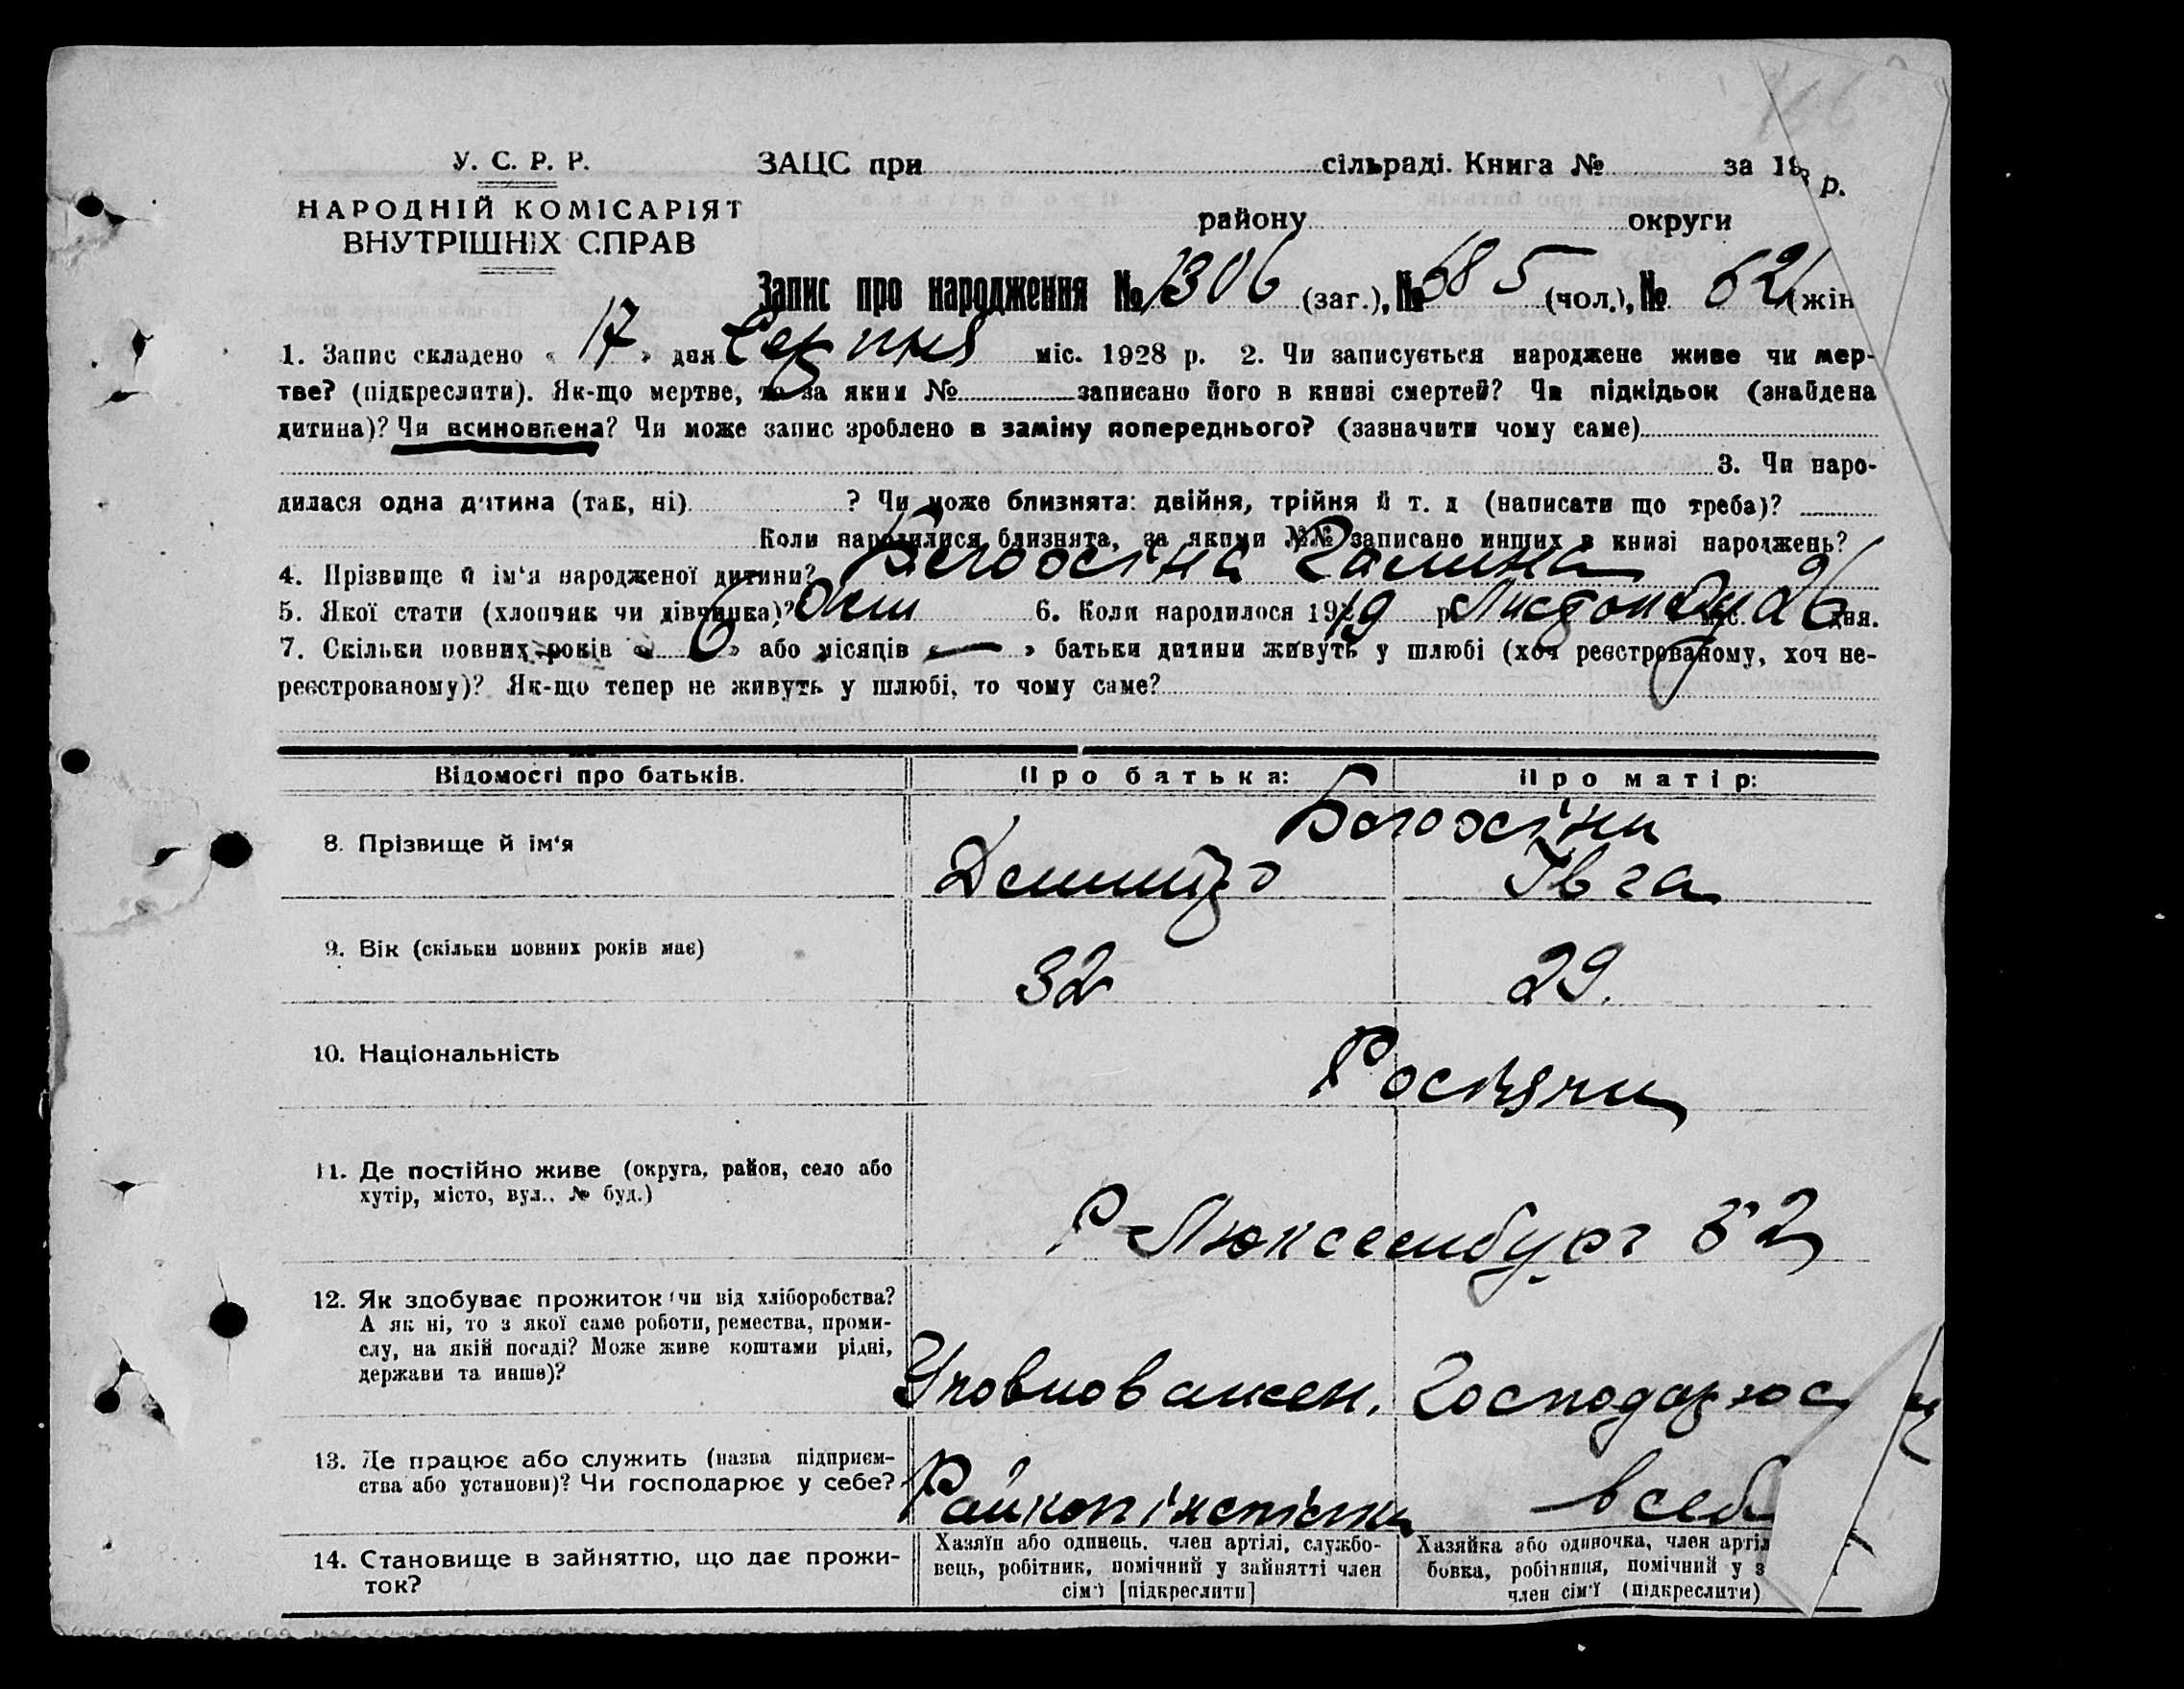 У. С. Р. Р.
НАРОДНІЙ КОМІСАРІЯТ
ВНУТРІШНІХ СПРАВ
ЗАЦС при сільраді. Книга № за 19 р.
району округи
Запис про народження № 1306 (заг.), № 685 (чол.), № 621 (жін
1. Запис складено « 17 » дня Серпня міс. 1928 р. 2. Чи записується народжене живе чи мер-
тве? (підкреслити). Як-що мертве, то за яким № записано його в книзі смертей? Чи підкідьок (знайдена
дитина)? Чи всиновлена? Чи може запис зроблено в заміну попереднього? (зазначити чому саме)
3. Чи наро-
дилася одна дитина (так, ні) ? Чи може близнята: двійня, трійня й т. д (написати що треба)?
Коли народилися близнята, за якими №№ записано инших в книзі народжень?
4. Прізвище й ім'я народженої дитини? Галина
5. Якої стати (хлопчик чи дівчинка)? жін 6. Коли народилося 1919 р. Листопаду міс. 26 дня.
7. Скільки повних років « 6 » або місяців « — » батьки дитини живуть у шлюбі (хоч реєстрованому, хоч не-
реєстрованому)? Як-що тепер не живуть у шлюбі, то чому саме?
Відомості про батьків. Про батька: Про матір:
8. Прізвище й ім'я
Дмитро Івга
9. Вік (скільки повних років має) 32 29.
10. Національність Росіяни
11. Де постійно живе (округа, район, село або
хутір, місто, вул., № буд.)
Р Люксембург 52
12. Як здобуває прожиток (чи від хліборобства?
А як ні, то з якої саме роботи, ремества, проми-
слу, на якій посаді? Може живе коштами рідні,
держави та инше)?
Уповноважен. Господарює
13. Де працює або служить (назва підприєм-
ства або установи)? Чи господарює у себе?
в себ
14. Становище в зайняттю, що дає прожи-
ток?
Хазяїн або одинець, член артілі, службо-
вець, робітник, помічний у зайнятті член
сім'ї [підкреслити]
Хазяйка або одиночка, член артіл
бовка, робітниця, помічний у з
член сім'ї (підкреслити)